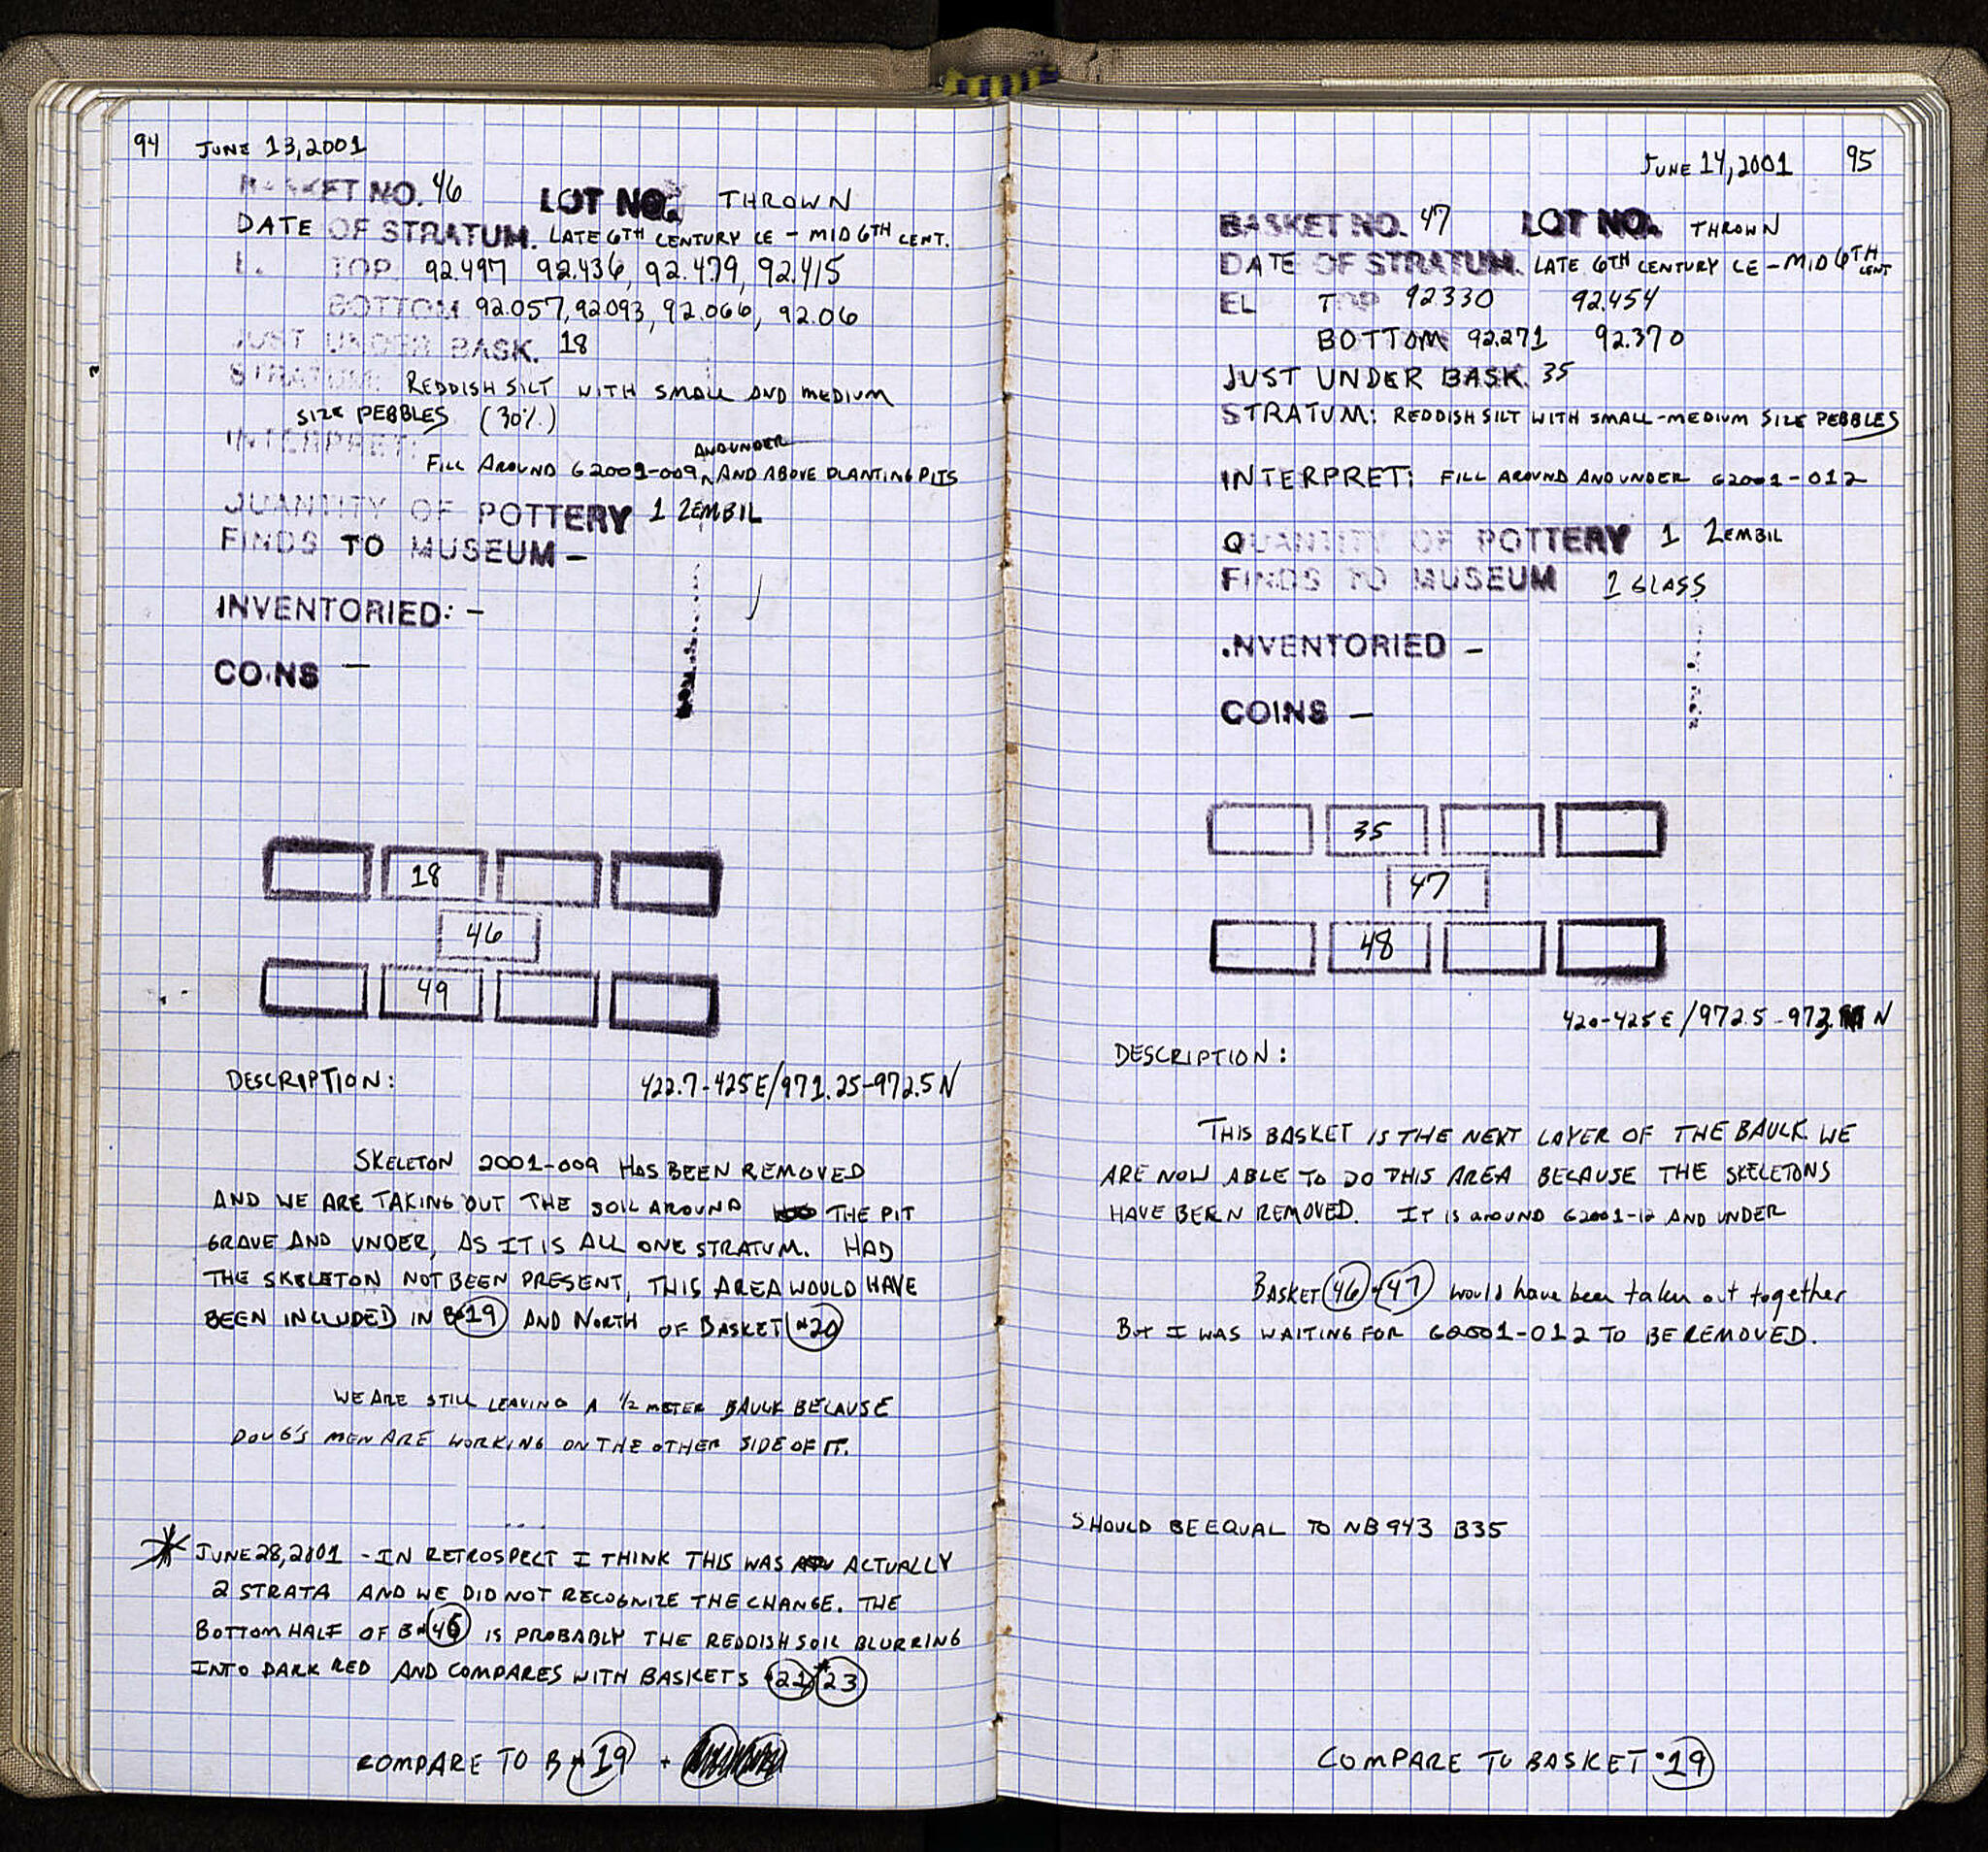 94 JUNE 13,2001
BASKET NO. 46 LOT NO. THROWN
DATE OF STRATUM. LATE 6TH CENTURY CE - MID 6TH CENT.
L. TOP 92.497 92.436, 92.479, 92.415
BOTTOM 92.057, 92.093, 92.066, 92.06
JUST UNDER BASK. 18
STRATUM: REDDISH SILT WITH SMALL AND MEDIUM
SIZE PEBBLES (30%)
AND UNDER
INTERPRET: FILL AROUND G2001-009 AND ABOVE PLANTING PITS
QUANTITY OF POTTERY 1 ZEMBIL
FINDS TO MUSEUM -
INVENTORIED: -
COINS -
18
46
49
DESCRIPTION: 422.7-425E/971.25-972.5N
SKELETON 2001-009 HAS BEEN REMOVED
AND WE ARE TAKING OUT THE SOIL AROUND THE PIT
GRAVE AND UNDER, AS IT IS ALL ONE STRATUM. HAD
THE SKELETON NOT BEEN PRESENT, THIS AREA WOULD HAVE
BEEN INCLUDED IN B#19 AND NORTH OF BASKET #20
WE ARE STILL LEAVING A 1/2 METER BAULK BECAUSE
DOUG'S MEN ARE WORKING ON THE OTHER SIDE OF IT.
* JUNE 28,2001 - IN RETROSPECT I THINK THIS WAS ACTUALLY
2 STRATA AND WE DID NOT RECOGNIZE THE CHANGE. THE
BOTTOM HALF OF B#46 IS PROBABLY THE REDDISH SOIL BLURRING
INTO DARK RED AND COMPARES WITH BASKETS #21 #23
COMPARE TO B#19 +
JUNE 14,2001 95
BASKET NO. 47 LOT NO. THROWN
DATE OF STRATUM. LATE 6TH CENTURY CE - MID 6TH CENT
EL TOP 92.330 92.454
BOTTOM 92.271 92.370
JUST UNDER BASK. 35
STRATUM: REDDISH SILT WITH SMALL-MEDIUM SIZE PEBBLES
INTERPRET: FILL AROUND AND UNDER G2001-012
QUANTITY OF POTTERY 1 ZEMBIL
FINDS TO MUSEUM 1 GLASS
INVENTORIED -
COINS -
35
47
48
420-425E/972.5-973. N
DESCRIPTION:
THIS BASKET IS THE NEXT LAYER OF THE BAULK WE
ARE NOW ABLE TO DO THIS AREA BECAUSE THE SKELETONS
HAVE BEEN REMOVED. IT IS AROUND G2001-12 AND UNDER
BASKET 46 + 47 would have been taken out together
But I WAS WAITING FOR G2001-012 TO BE REMOVED.
SHOULD BE EQUAL TO NB 943 B35
COMPARE TO BASKET #19